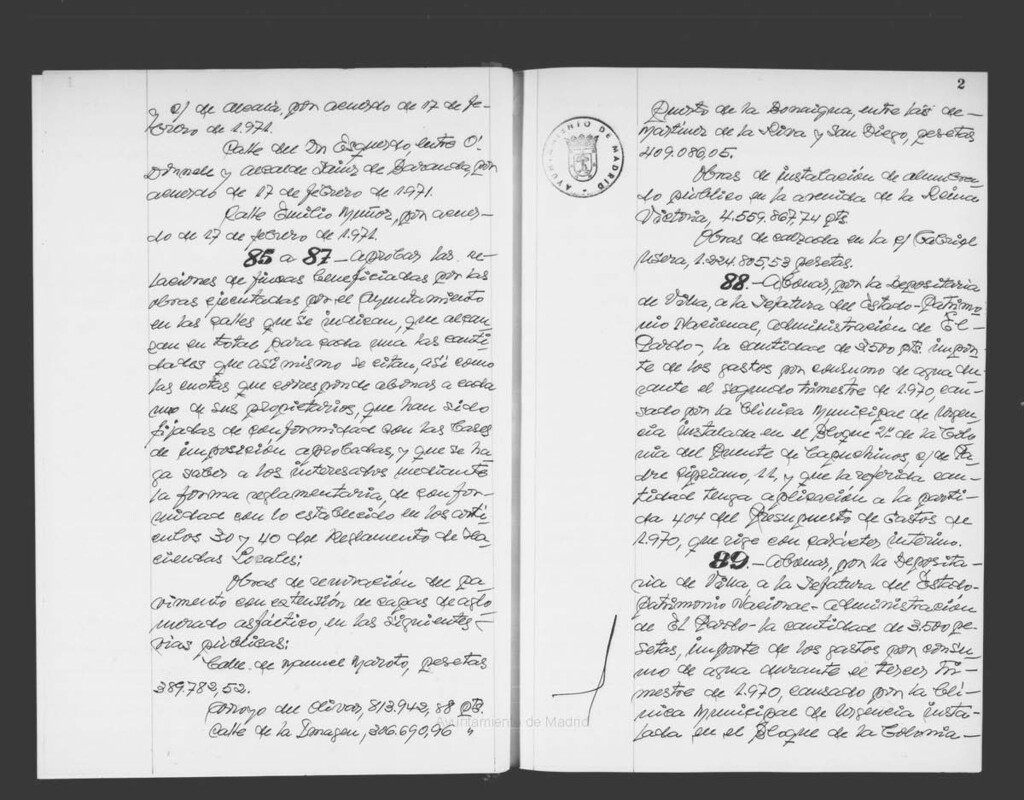 y c/ de Alcalá, por acuerdo de 17 de fe-
brero de 1.971.
Calle del Dr. Esquerdo, entre O'
Donnell y Alcalde Sáinz de Baranda, por
acuerdo de 17 de febrero de 1.971.
Calle Emilio Muñoz, por acuer-
do de 17 de febrero de 1.971.
85 a 87.- Aprobar las re-
laciones de fincas beneficiadas por las
obras ejecutadas por el Ayuntamiento
en las calles que se indican, que alcan-
zan en total para cada una las canti-
dades que asimismo se citan, así como
las cuotas que corresponde abonar a cada
uno de sus propietarios, que han sido
fijadas de conformidad con las bases
de imposición aprobadas, y que se ha-
ga saber a los interesados mediante
la forma reglamentaria, de confor-
midad con lo establecido en los artí-
culos 30 y 40 del Reglamento de Ha-
ciendas Locales:
Obras de renovación del pa-
vimento con extensión de capas de aglo-
merado asfáltico, en las siguientes -
vías públicas:
Calle de Manuel Maroto, pesetas
389.782,52.
Arroyo del Olivar, 813.942,88 pts.
Calle de la Imagen, 306.690,96 "
2
AYUNTAMIENTO DE MADRID
Puerto de la Bonaigua, entre las de -
Martínez de la Riva y San Diego, pesetas
409.086,05.
Obras de instalación de alumbra-
do público en la avenida de la Reina
Victoria, 4.559.867,74 pts.
Obras de calzada en la c/ Gabriel
Usera, 1.224.805,53 pesetas.
88.- Abonar, por la Depositaría
de Villa, a la Jefatura del Estado-Patrimo-
nio Nacional, administración de El -
Pardo-, la cantidad de 3.500 pts. impor-
te de los gastos por consumo de agua du-
rante el segundo trimestre de 1.970, cau-
sado por la Clínica Municipal de Urgen-
cia instalada en el Bloque 2º de la Colo-
nia del Puente de Capuchinos c/ de Pa-
dre Cipriano, 11, y que la referida can-
tidad tenga aplicación a la parti-
da 404 del Presupuesto de Gastos de
1.970, que rige con carácter interino.
89.- Abonar, por la Deposita-
ría de Villa, a la Jefatura del Estado-
Patrimonio Nacional - administración
de El Pardo - la cantidad de 3.500 pe-
setas, importe de los gastos por consu-
mo de agua durante el tercer tri-
mestre de 1.970, causado por la Clí-
nica Municipal de Urgencia insta-
lada en el Bloque de la Colonia -
Ayuntamiento de Madrid